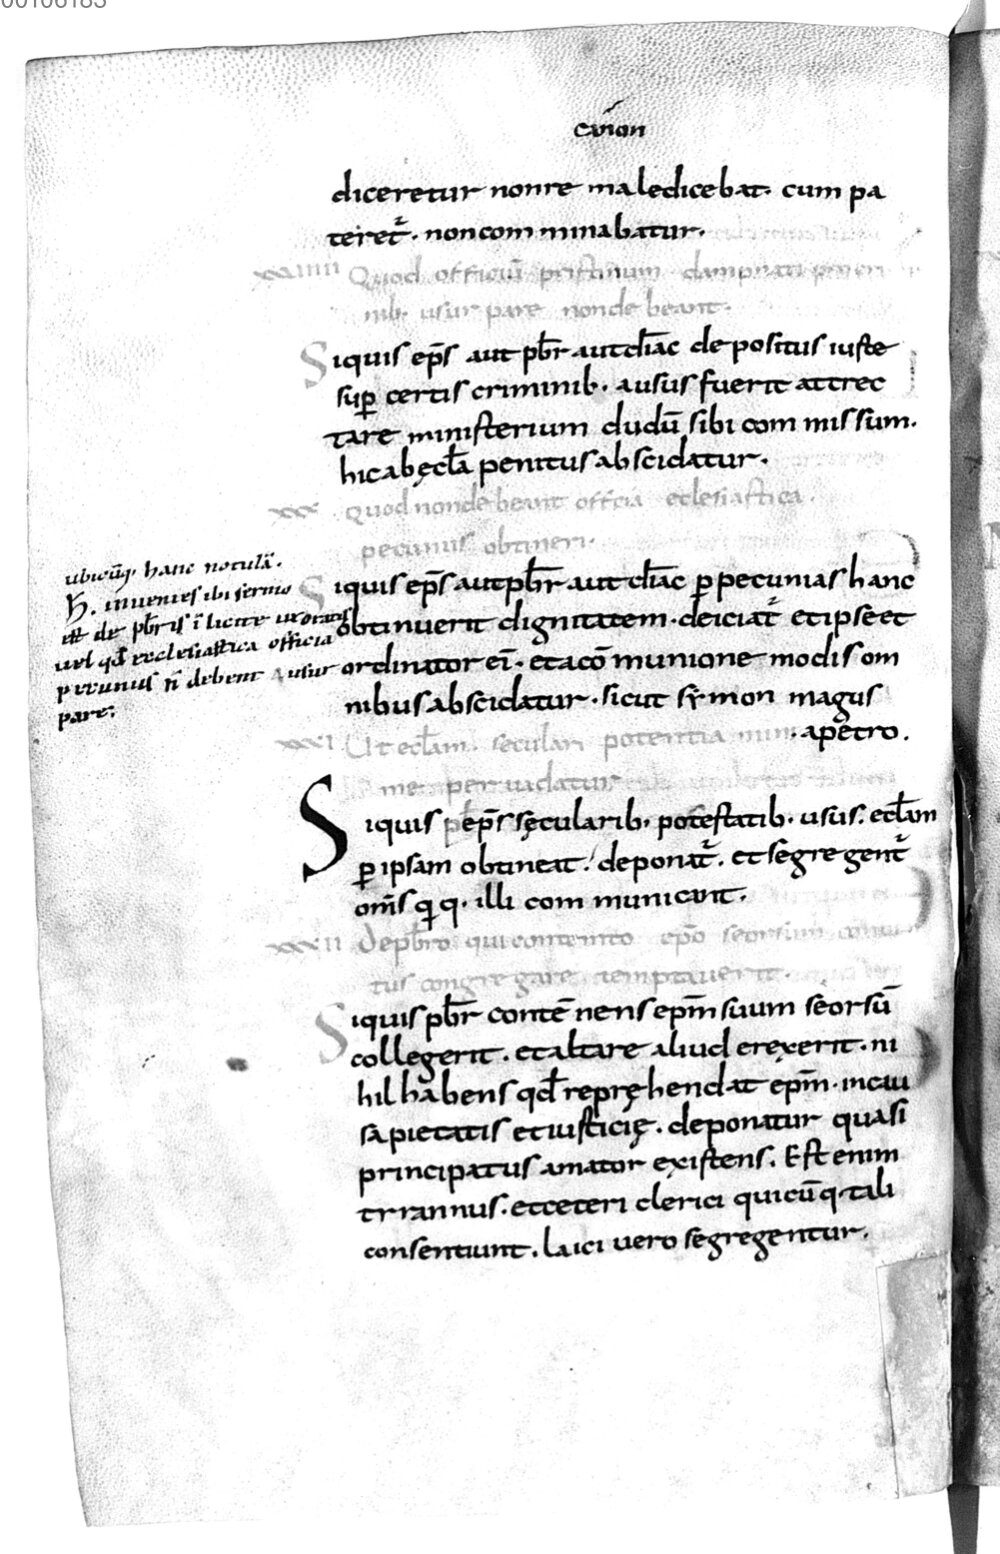 00106183
diceretur non re maledicebat. cum pa
teret̃. non comminabatur.
xxviiii Quod officiū pristinum dampnati
nib. usurpare non debeant.
Siquis ep̄s aut pb̄r aut diāc depositus iuste
sup̱ certis criminib. ausus fuerit attrec
tare ministerium dudū sibi commissum.
hic ab ęcl̄a penitus abscidatur.
xxx Quod non debeant officia eclesiastica
pecuniis obtineri.
ubicūq. hanc notulā.
inuenies ibi sermo
est de pb̄ris ī licite uxorates
uel qd̄ ecclesiastica officia
pecuniis n̄ debent usur
pare;
Siquis ep̄s aut pb̄r aut diāc p̱ pecunias hanc
obtinuerit dignitatem. deiciat̃ et ipse et
ordinator ei. et a cōmunione modis om
nibus abscidatur. sicut symon magus
a petro.
xxxi Ut ecl̄am. seculari potentia
me peruadatur
Siquis ep̄s sęcularib. potestatib. usus. ecl̄am
p̱ ipsam obtineat. deponat̃. et segregent̃
om̄s qui q. illi communicant.
xxxii De pb̄ro qui contempto ep̄o seorsum
tus congregare temptauerit.
Siquis pb̄r contēnens ep̄m suum seorsū
collegerit. et altare aliud erexerit. ni
hil habens qd̄ reprehendat ep̄m. in cau
sa pietatis et iusticię. deponatur quasi
principatus amator existens. Est enim
tyrannus. et ceteri clerici quicūq. tali
consentiunt. laici uero segregentur.